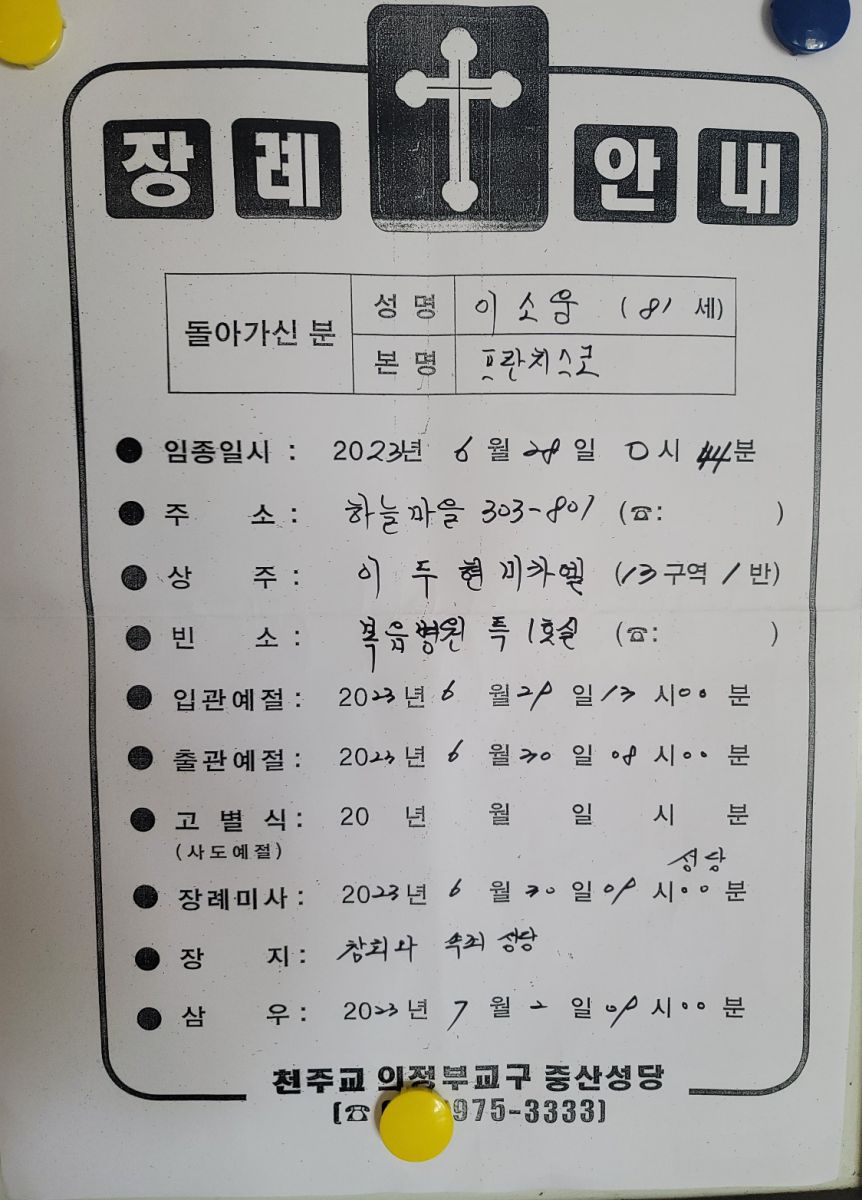 장례 안내
돌아가신 분
성 명 이 소웅 (81 세)
본 명 프란치스코
● 임종일시 : 2023년 6 월 28 일 0 시 44분
● 주 소 : 하늘마을 303-801 (☎: )
● 상 주 : 이 두 현 미카엘 (13 구역 1 반)
● 빈 소 : 복음병원 특 1호실 (☎: )
● 입관예절 : 2023 년 6 월 29 일 13 시 00 분
● 출관예절 : 2023 년 6 월 30 일 08 시 00 분
● 고 별 식 : 20 년 월 일 시 분
(사도예절)
성당
● 장례미사 : 2023 년 6 월 30 일 09 시 00 분
● 장 지 : 참회와 속죄 성당
● 삼 우 : 2023 년 7 월 2 일 09 시 00 분
천주교 의정부교구 중산성당
(☎ 975-3333)